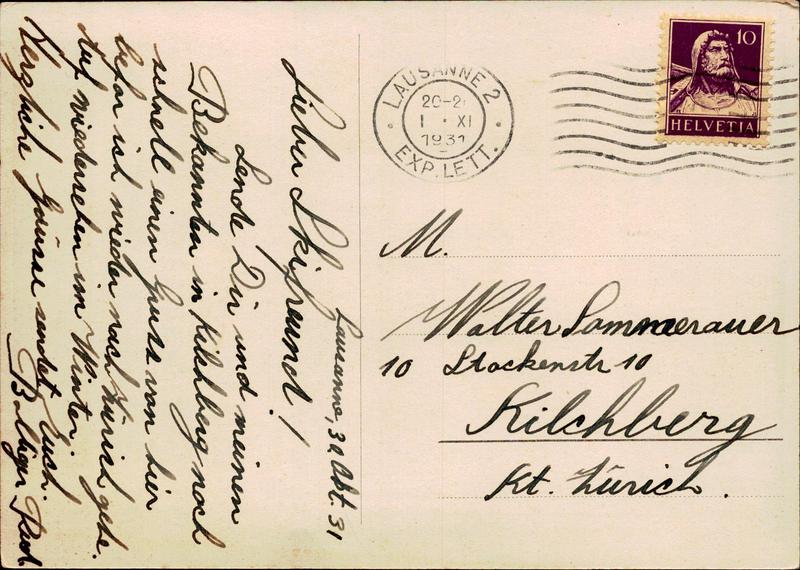 Lausanne, 30. Okt. 31
Lieber Skifreund!
Sende Dir und meinen
Bekannten in Kilchberg noch
schnell einen Gruss von hier
befor ich wieder nach Zürich gehe.
Auf Wiedersehen im Winter.
Herzliche Grüsse sendet Euch.
Bolliger
LAUSANNE 2
20-2
1 · XI
1931
EXP. LETT.
10
HELVETIA
M.
Walter Sommerauer
10 Stockenstr 10
Kilchberg
Kt. Zürich.